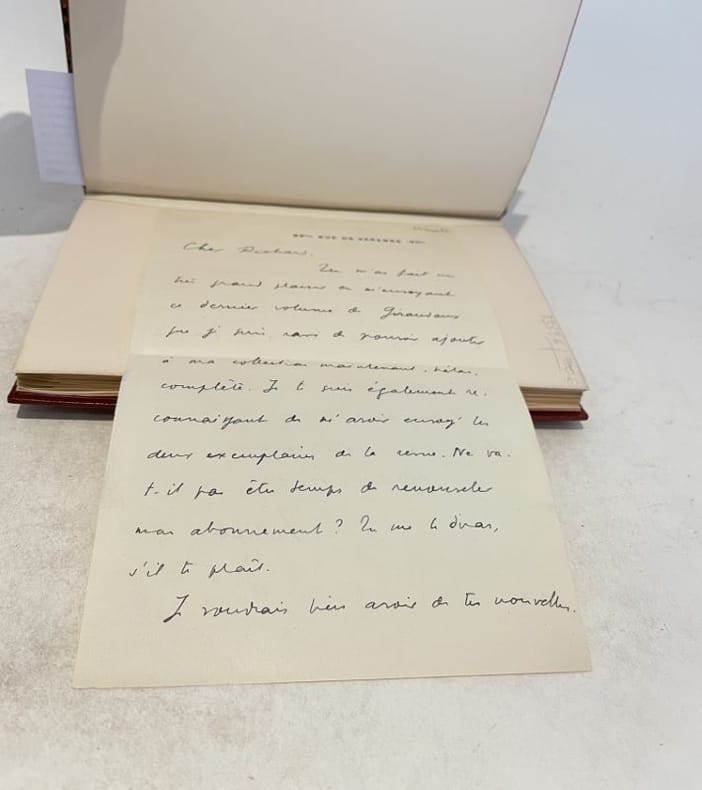 RUE DE VARENNE
Cher Richard,
Tu m'as fait un
très grand plaisir en m'envoyant
ce dernier volume de Giraudoux
que je suis ravi de pouvoir ajouter
à ma collection maintenant, hélas,
complète. Je te suis également re-
connaissant de m'avoir envoyé les
deux exemplaires de la revue. Ne va-
t-il pas être temps de renouveler
mon abonnement ? Tu me le diras,
s'il te plaît.
Je voudrais bien avoir de tes nouvelles.